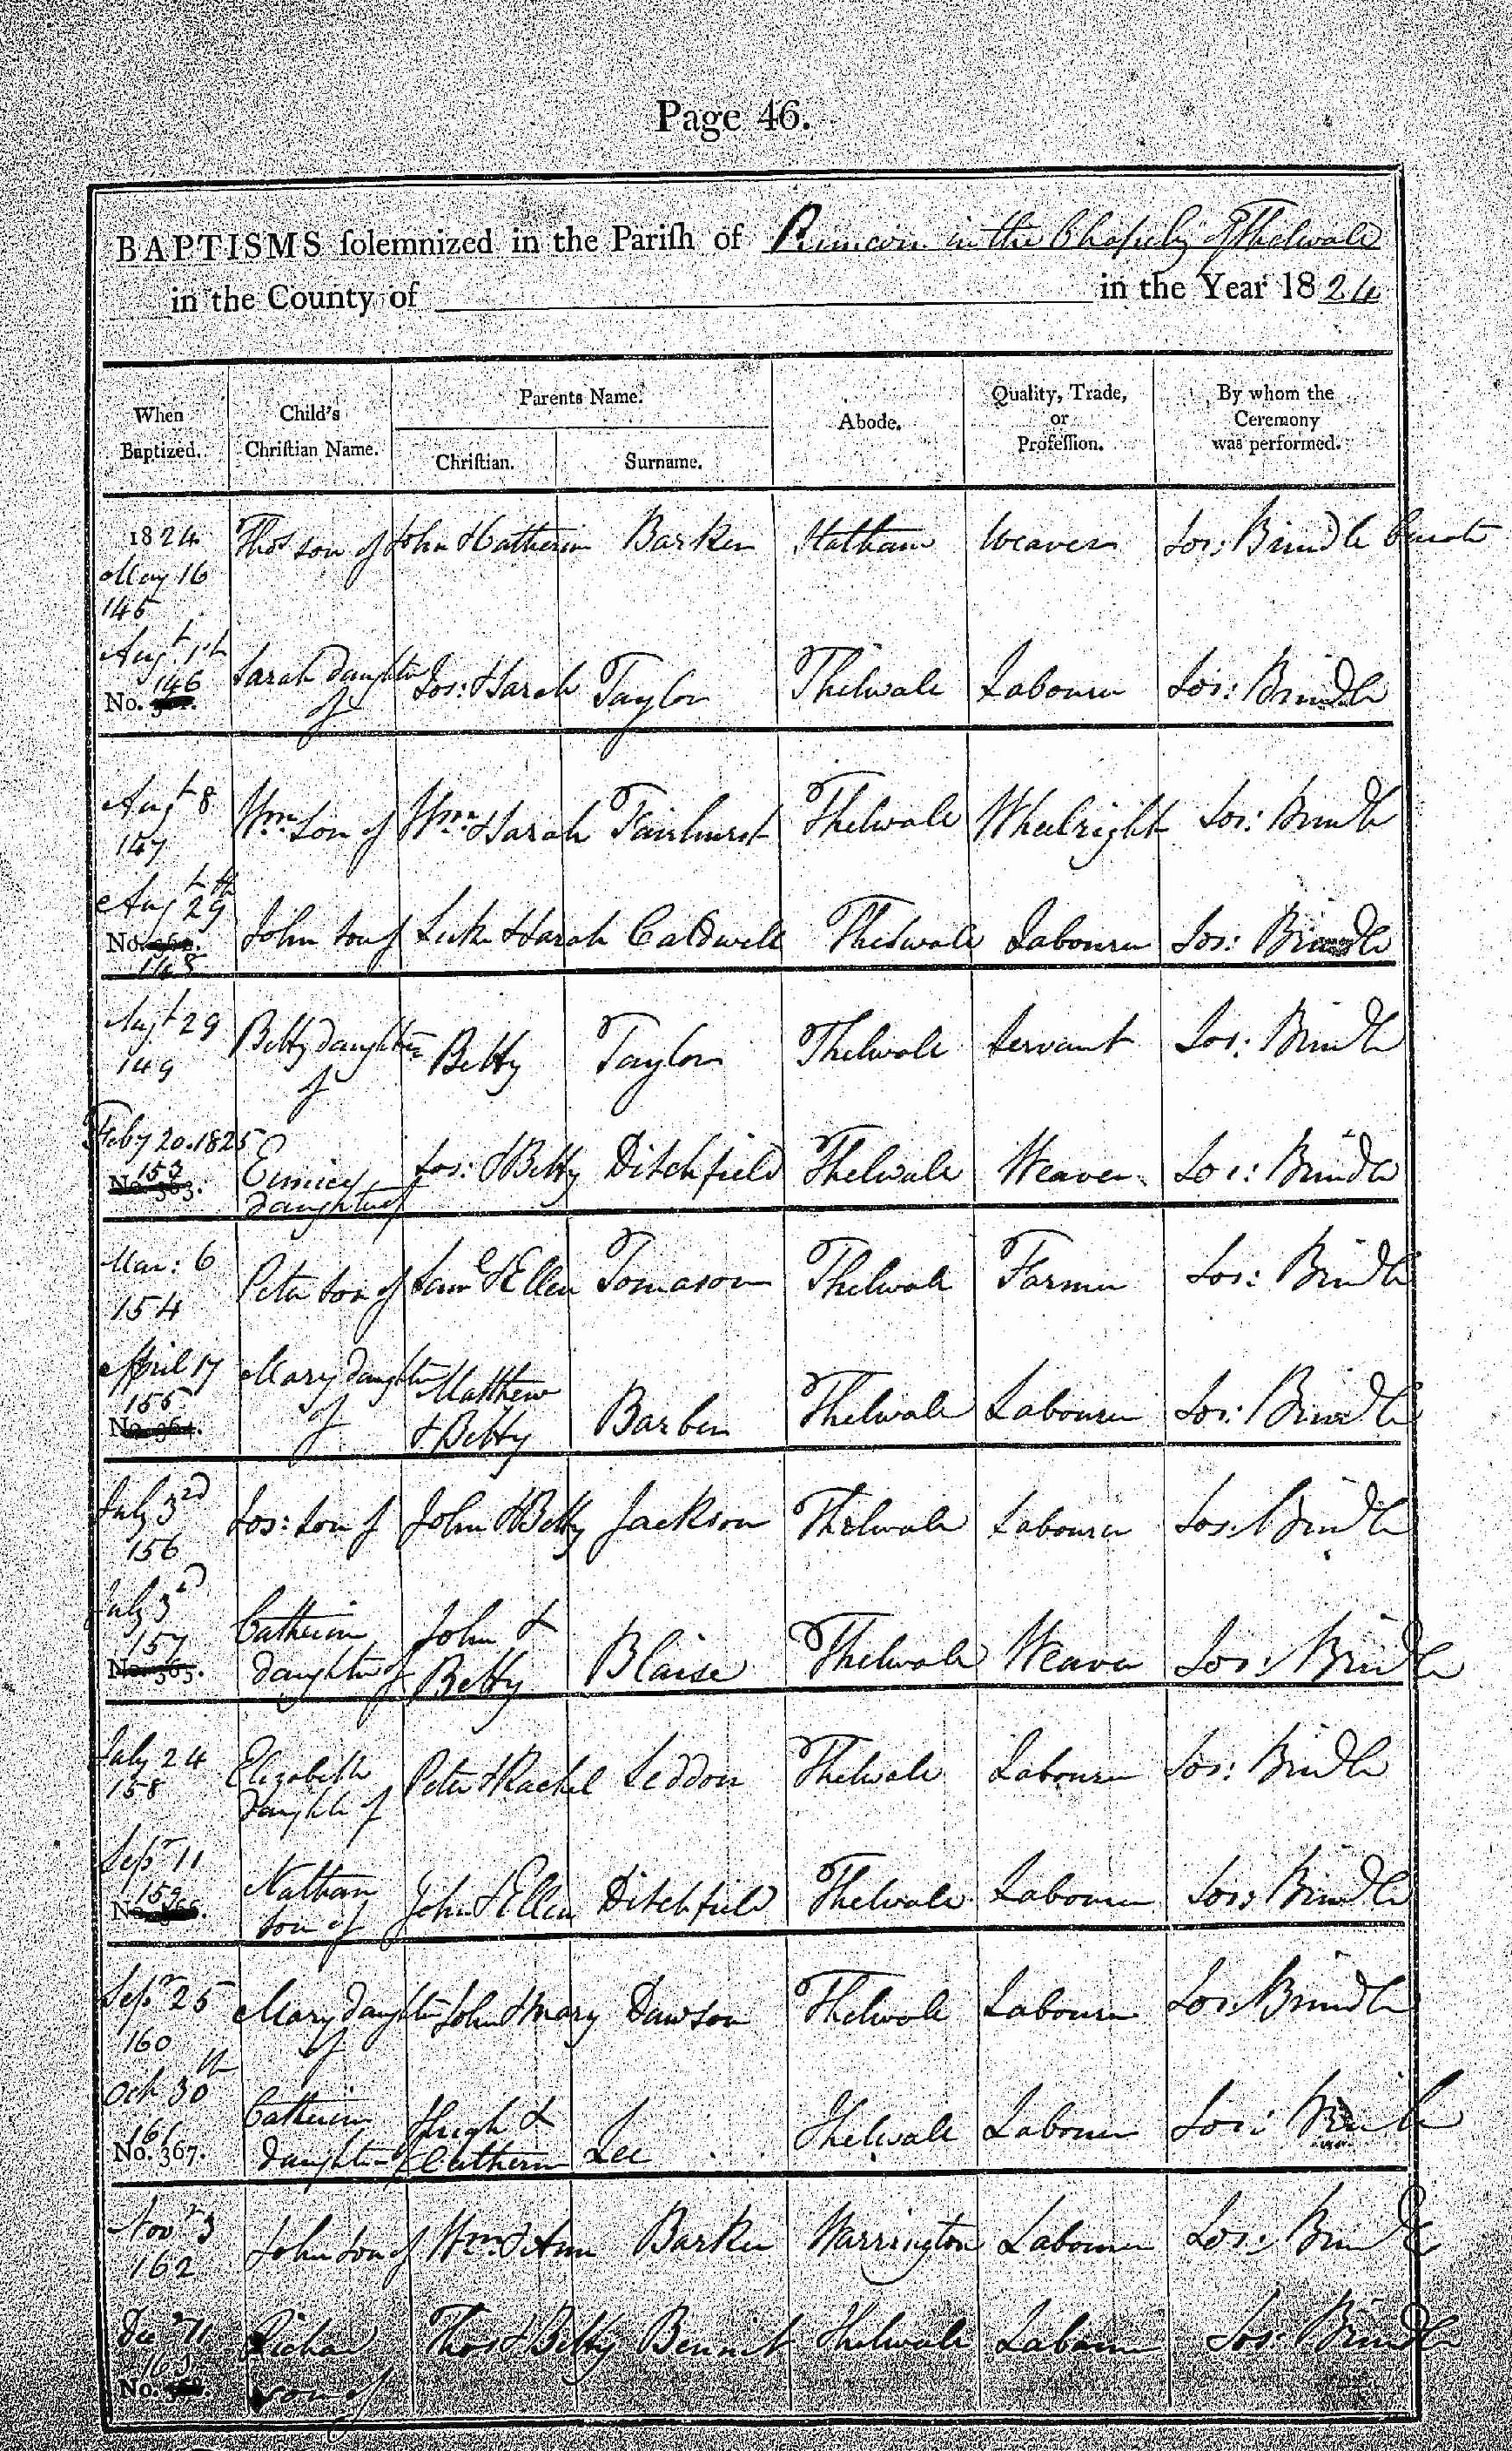 Page 46.
BAPTISMS ſolemnized in the Pariſh of Runcorn in the Chapelry of Thelwall
in the County of in the Year 1824
When Baptized. Child's Chriſtian Name. Parents Name. Chriſtian. Surname. Abode. Quality, Trade, or Profeſſion. By whom the Ceremony was performed.
1824 May 16 145 Thos son of John & Catherin Barker Statham Weaver Jos: Brindle Curate
Augt 1st No. 146 Sarah Daughter of Jos: & Sarah Taylor Thelwall Labourer Jos: Brindle
Augt 8 147 Wm son of Wm & Sarah Fairhurst Thelwall Wheelright Jos: Brindle
Augt 29th No. 148 John son of Luke & Sarah Caldwell Thelwall Labourer Jos: Brindle
Augt 29 149 Betty daughter of Betty Taylor Thelwall Servant Jos: Brindle
Feby 20. 1825 153 No. 363. Daughter of Jos: & Betty Ditchfield Thelwall Weaver Jos: Brindle
Mar: 6 154 Peter son of Saml & Ellen Tomason Thelwall Farmer Jos: Brindle
April 17 155 No. 364. Mary daughter of Matthew & Betty Barber Thelwall Labourer Jos: Brindle
July 3rd 156 Jos: son of John & Betty Jackson Thelwall Labourer Jos: Brindle
July 3d 157 No. 365. Catherine daughter of John & Betty Blaise Thelwall Weaver Jos: Brindle
July 24 158 Elizabeth Daughter of Peter & Rachel Seddon Thelwall Labourer Jos: Brindle
Sepr 11 159 No. 366. Nathan son of John & Ellen Ditchfield Thelwall Labourer Jos: Brindle
Sepr 25 160 Mary daughter of John & Mary Dawson Thelwall Labourer Jos: Brindle
Oct 30th 161 No. 367. Catherine daughter of Hugh & Catherine Lee Thelwall Labourer Jos: Brindle
Novr 3 162 John son of Wm & Ann Barker Warrington Labourer Jos: Brindle
Decr 11 163 No. Richard son of Thos & Betty Bennet Thelwall Labourer Jos: Brindle